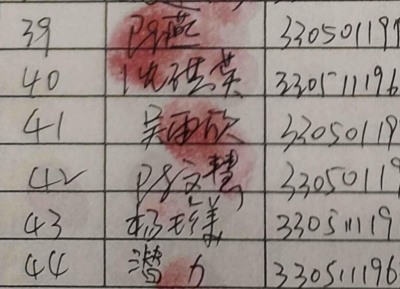 39 陈燕 330501197
40 沈琪英 330511196
41 吴雨欣 33050119
42 陈文慧 33050119
43 杨玉美 33051119
44 潜力 330511196